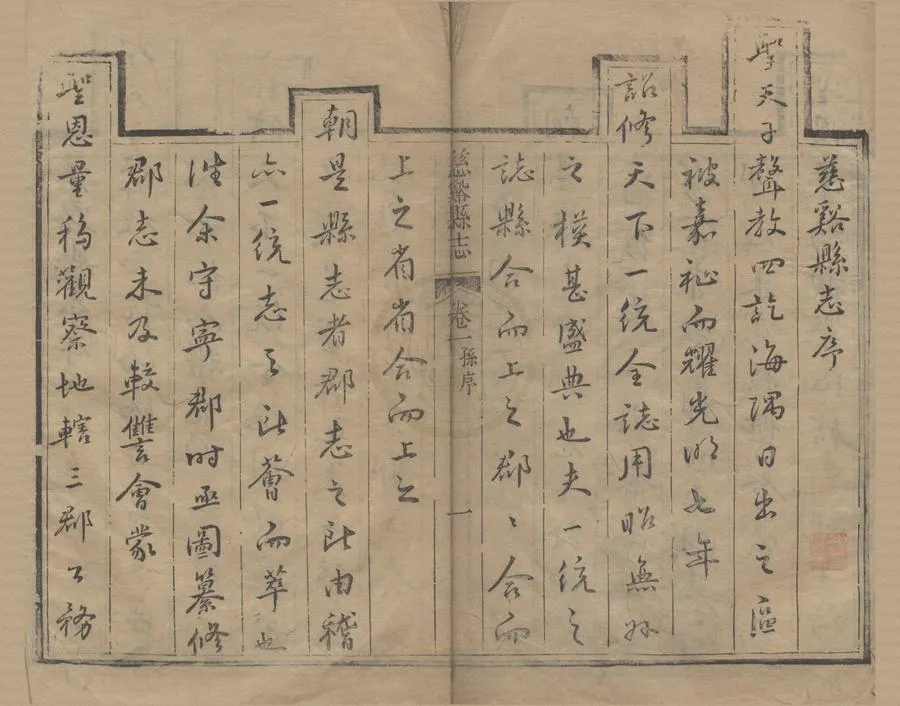 慈谿縣志序
聖天子聲教四訖海隅日出之區
被嘉祉而耀光明七年
詔修
天下一統全誌用昭無外
之模甚盛典也夫一統之
誌縣合而上之郡〻合而
慈谿縣志 卷一 孫序 一
上之省省合而上之
朝是縣志者郡志之所由稽
亦一統志之所薈而萃也
往余守寧郡時亟圖纂修
郡志未及較讐會蒙
聖恩量移觀察地轄三郡公務